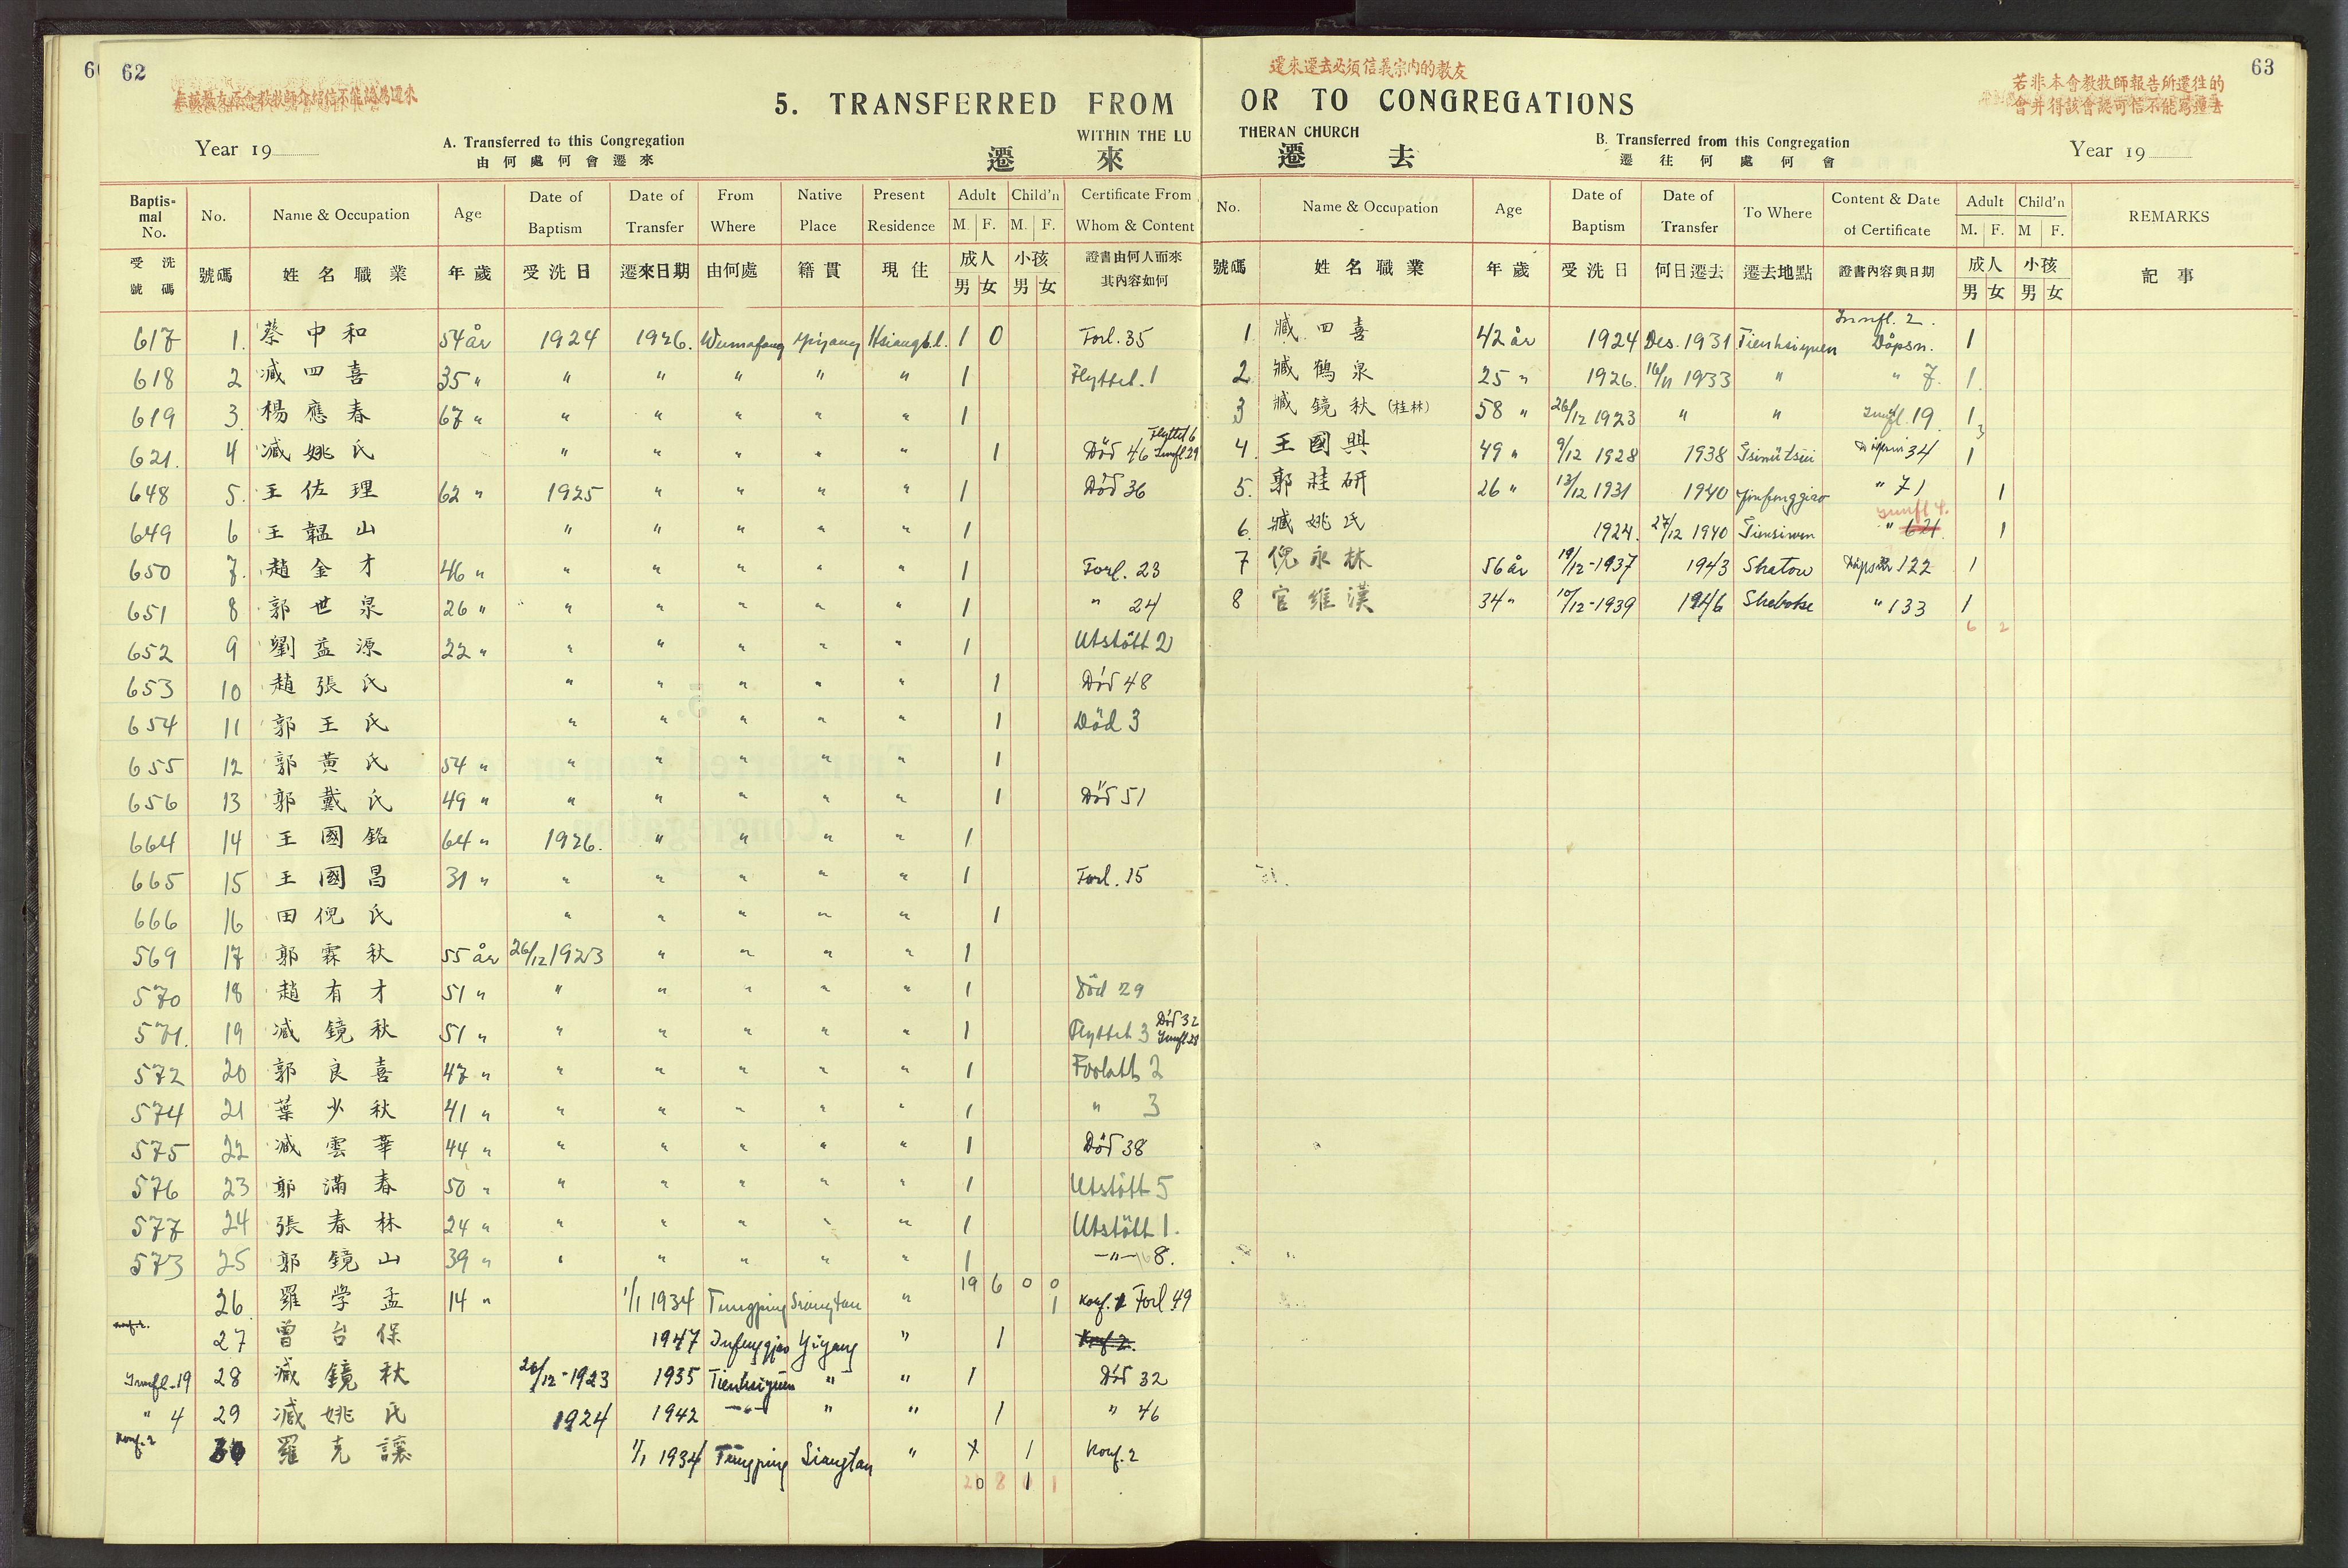 62
5. TRANSFERRED FROM
WITHIN THE LU
Year 19
A. Transferred to this Congregation
由何處何會遷來
遷 來
Baptismal No. No. Name & Occupation Age Date of Baptism Date of Transfer From Where Native Place Present Residence Adult M. F. Child'n M. F. Certificate From Whom & Content
受洗號碼 號碼 姓名職業 年歲 受洗日 遷來日期 由何處 籍貫 現住 成人 男 女 小孩 男 女 證書由何人而來其內容如何
617 1. 蔡中和 54 år 1924 1926. Wumafang Yiyang 1 0 Forl. 35
618 2 臧四喜 35 " " " " " " 1 Flyttet. 1
619 3. 楊應春 67 " " " " " " 1
621. 4 臧姚氏 " " " " " 1 Död 46 Flyttet 6 Innfl 29
648 5. 王佐理 62 " 1925 " " " " 1 Död 36
649 6 王韞山 " " " " " 1
650 7. 趙金才 46 " " " " " " 1 Forl. 23
651 8 郭世泉 26 " " " " " " 1 " 24
652 9 劉益源 22 " " " " " " 1 Utstött 2
653 10 趙張氏 " " " " " 1 Död 48
654 11 郭王氏 " " " " " 1 Död 3
655 12 郭黃氏 54 " " " " " " 1
656 13 郭戴氏 49 " " " " " " 1 Död 51
664 14 王國銘 64 " 1926. " " " " 1
665 15 王國昌 31 " " " " " " 1 Forl. 15
666 16 田倪氏 " " " " " 1
569 17 郭霖秋 55 år 26/12 1923 " " " " 1
570 18 趙有才 51 " " " " " " 1 Död 29
571. 19 臧鏡秋 51 " " " " " " 1 Flyttet 3 Död 32 Innfl. 28
572 20 郭良喜 47 " " " " " " 1 Forlatt 2
574 21 葉少秋 41 " " " " " " 1 " 3
575 22 臧雲華 44 " " " " " " 1 Död 38
576 23 郭滿春 50 " " " " " " 1 Utstött 5
577 24 張春林 24 " " " " " " 1 Utstött 1.
573 25 郭鏡山 39 " " " " " " 1 —"— 8.
19 6 0 0
26. 羅学孟 14 " 1/1 1934 Tungping Siangtan " 1 Konf. 1 Forl 49
27 曾台保 1947 Yiyang " 1 Konf 2.
Innfl. 19 28 臧鏡秋 26/12-1923 1935 Tienhsiyuen " " 1 Död 32
" 4 29 臧姚氏 1924 1942 —"— " " 1 " 46
Konf. 2 30 羅克讓 1/1 1934 Tungping Siangtan " 1 Konf. 2
20 8 1 1
遷來遷去必須信義宗內的教友
63
若非本會教牧師報告所遷往的
會并得該會認可信不能寫遷去
OR TO CONGREGATIONS
THERAN CHURCH
遷 去
B. Transferred from this Congregation
遷往何處何會
Year 19
No. Name & Occupation Age Date of Baptism Date of Transfer To Where Content & Date of Certificate Adult M. F. Child'n M F. REMARKS
號碼 姓名職業 年歲 受洗日 何日遷去 遷去地點 證書內容與日期 成人 男 女 小孩 男 女 記事
1 臧四喜 42 år 1924 Des. 1931 Tienhsiyuen Innfl. 2. Dåpsn. 1
2 臧鶴泉 25 " 1926. 16/11 1933 " " 7. 1.
3 臧鏡秋 (桂林) 58 " 26/12 1923 " " Innfl. 19 1
4. 王國興 49 " 9/12 1928 1938 34 1
5. 郭桂研 26 " 13/12 1931 1940 " 71 1
6. 臧姚氏 1924. 27/12 1940 Innfl 4. " 621. 1
7 倪永林 56 år 19/12-1937 1943 Shatow 122 1
8 官維漢 34 " 10/12-1939 1946 " 133 1
6 2